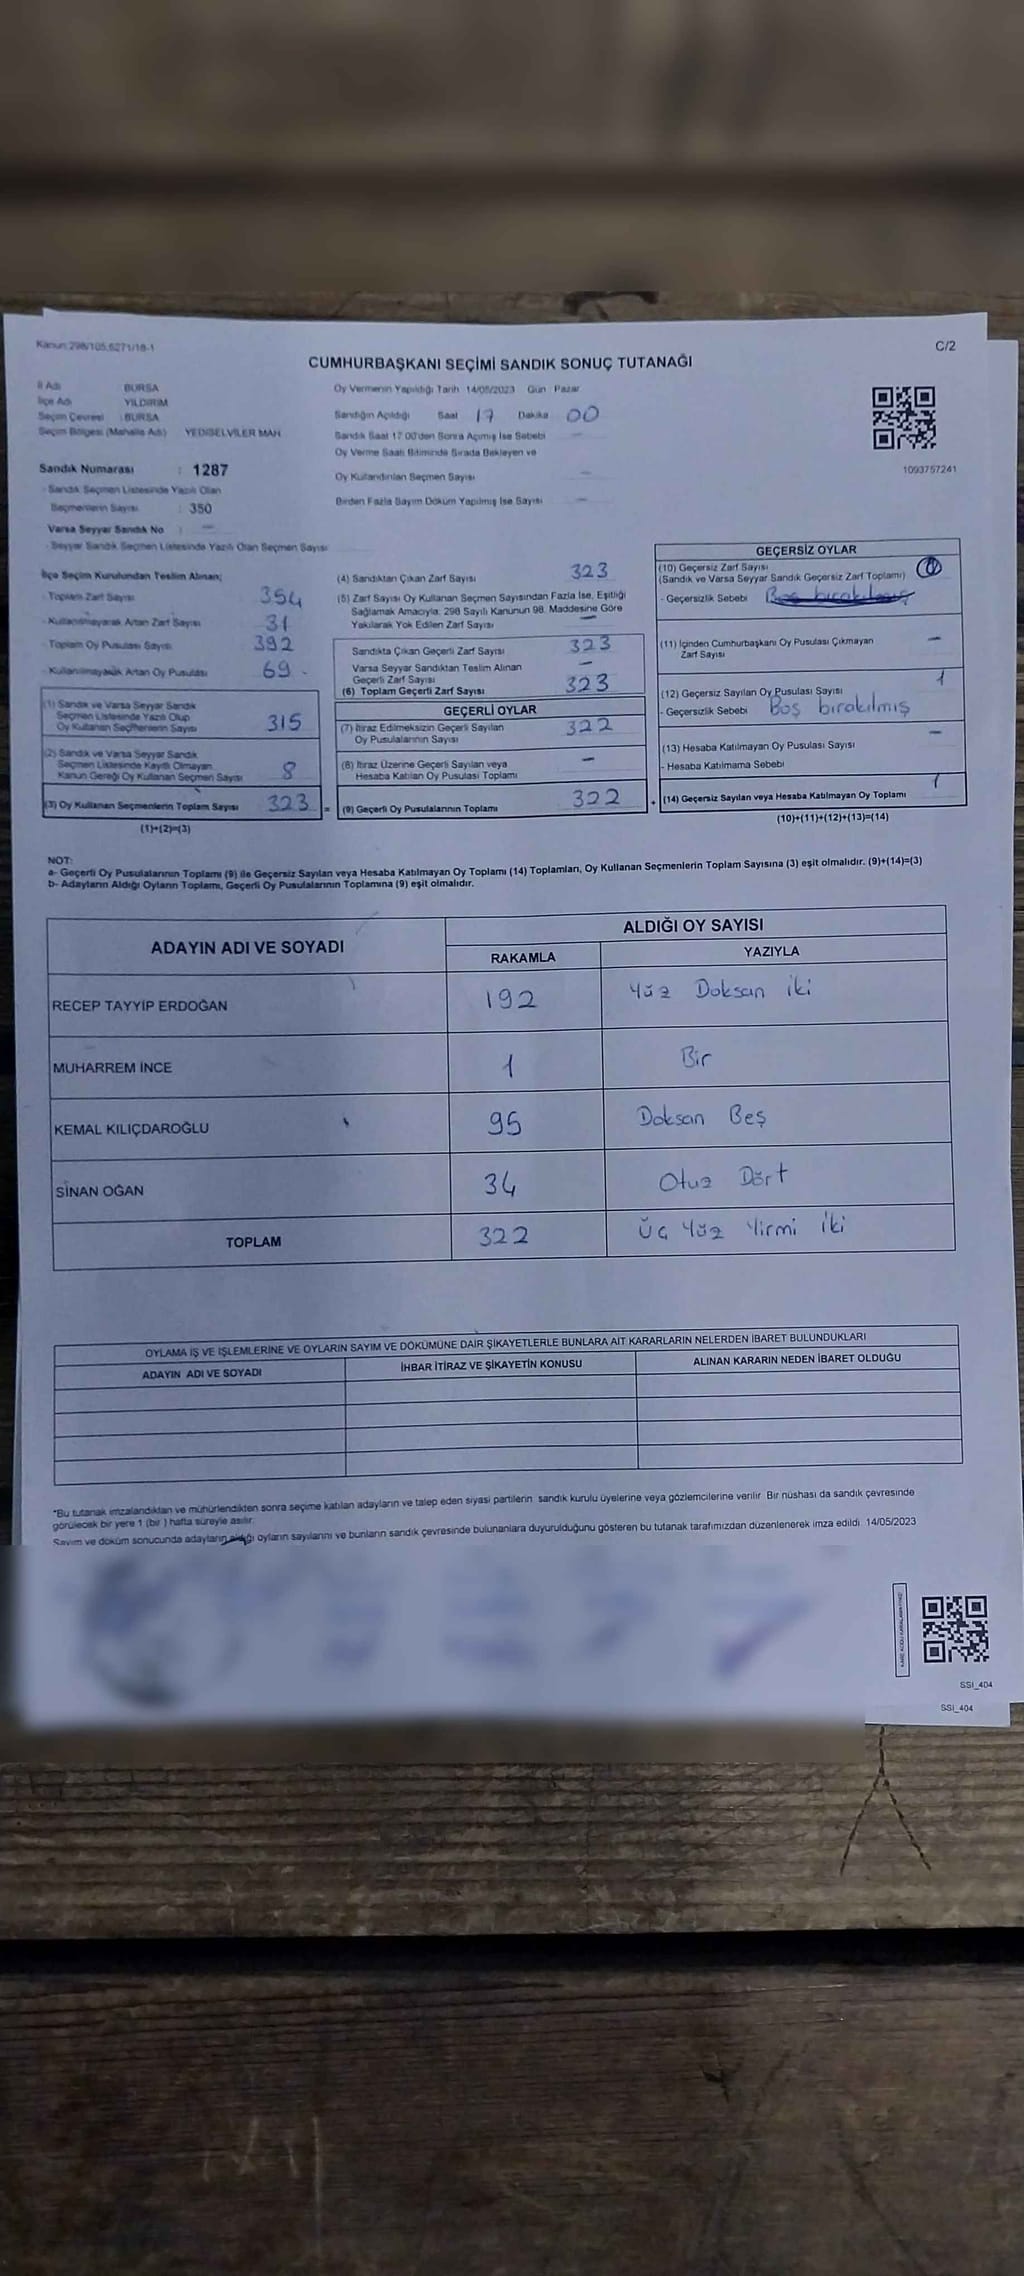 Kanun:298/105,6271/18-1
C/2
CUMHURBAŞKANI SEÇİMİ SANDIK SONUÇ TUTANAĞI
İl Adı BURSA
İlçe Adı YILDIRIM
Seçim Çevresi : BURSA
Seçim Bölgesi (Mahalle Adı) YEDİSELVİLER MAH.
Sandık Numarası : 1287
- Sandık Seçmen Listesinde Yazılı Olan
Seçmenlerin Sayısı : 350
Varsa Seyyar Sandık No : —
- Seyyar Sandık Seçmen Listesinde Yazılı Olan Seçmen Sayısı
Oy Vermenin Yapıldığı Tarih 14/05/2023 Gün Pazar
Sandığın Açıldığı Saat 17 Dakika 00
Sandık Saat 17.00'den Sonra Açılmış İse Sebebi —
Oy Verme Saati Bitiminde Sırada Bekleyen ve
Oy Kullandırılan Seçmen Sayısı —
Birden Fazla Sayım Döküm Yapılmış İse Sayısı —
1093757241
İlçe Seçim Kurulundan Teslim Alınan;
- Toplam Zarf Sayısı 354
- Kullanılmayarak Artan Zarf Sayısı 31
- Toplam Oy Pusulası Sayısı 392
- Kullanılmayarak Artan Oy Pusulası 69
(1) Sandık ve Varsa Seyyar Sandık
Seçmen Listesinde Yazılı Olup
Oy Kullanan Seçmenlerin Sayısı 315
(2) Sandık ve Varsa Seyyar Sandık
Seçmen Listesinde Kayıtlı Olmayan
Kanun Gereği Oy Kullanan Seçmen Sayısı 8
(3) Oy Kullanan Seçmenlerin Toplam Sayısı 323 =
(1)+(2)=(3)
(4) Sandıktan Çıkan Zarf Sayısı 323
(5) Zarf Sayısı Oy Kullanan Seçmen Sayısından Fazla İse, Eşitliği
Sağlamak Amacıyla, 298 Sayılı Kanunun 98. Maddesine Göre
Yakılarak Yok Edilen Zarf Sayısı —
Sandıkta Çıkan Geçerli Zarf Sayısı 323
Varsa Seyyar Sandıktan Teslim Alınan
Geçerli Zarf Sayısı —
(6) Toplam Geçerli Zarf Sayısı 323
GEÇERLİ OYLAR
(7) İtiraz Edilmeksizin Geçerli Sayılan
Oy Pusulalarının Sayısı 322
(8) İtiraz Üzerine Geçerli Sayılan veya
Hesaba Katılan Oy Pusulası Toplamı —
(9) Geçerli Oy Pusulalarının Toplamı 322 +
GEÇERSİZ OYLAR
(10) Geçersiz Zarf Sayısı
(Sandık ve Varsa Seyyar Sandık Geçersiz Zarf Toplamı)
- Geçersizlik Sebebi Boş bırakılmış
(11) İçinden Cumhurbaşkanı Oy Pusulası Çıkmayan
Zarf Sayısı —
(12) Geçersiz Sayılan Oy Pusulası Sayısı 1
- Geçersizlik Sebebi Boş bırakılmış
(13) Hesaba Katılmayan Oy Pusulası Sayısı —
- Hesaba Katılmama Sebebi
(14) Geçersiz Sayılan veya Hesaba Katılmayan Oy Toplamı 1
(10)+(11)+(12)+(13)=(14)
NOT:
a- Geçerli Oy Pusulalarının Toplamı (9) ile Geçersiz Sayılan veya Hesaba Katılmayan Oy Toplamı (14) Toplamları, Oy Kullanan Seçmenlerin Toplam Sayısına (3) eşit olmalıdır. (9)+(14)=(3)
b- Adayların Aldığı Oyların Toplamı, Geçerli Oy Pusulalarının Toplamına (9) eşit olmalıdır.
ADAYIN ADI VE SOYADI ALDIĞI OY SAYISI
RAKAMLA YAZIYLA
RECEP TAYYİP ERDOĞAN 192 Yüz Doksan iki
MUHARREM İNCE 1 Bir
KEMAL KILIÇDAROĞLU 95 Doksan Beş
SİNAN OĞAN 34 Otuz Dört
TOPLAM 322 Üç Yüz Yirmi iki
OYLAMA İŞ VE İŞLEMLERİNE VE OYLARIN SAYIM VE DÖKÜMÜNE DAİR ŞİKAYETLERLE BUNLARA AİT KARARLARIN NELERDEN İBARET BULUNDUKLARI
ADAYIN ADI VE SOYADI İHBAR İTİRAZ VE ŞİKAYETİN KONUSU ALINAN KARARIN NEDEN İBARET OLDUĞU
*Bu tutanak imzalandıktan ve mühürlendikten sonra seçime katılan adayların ve talep eden siyasi partilerin sandık kurulu üyelerine veya gözlemcilerine verilir. Bir nüshası da sandık çevresinde
görülecek bir yere 1 (bir) hafta süreyle asılır.
Sayım ve döküm sonucunda adayların aldığı oyların sayılarını ve bunların sandık çevresinde bulunanlara duyurulduğunu gösteren bu tutanak tarafımızdan düzenlenerek imza edildi. 14/05/2023
SSI_404
SSI_404